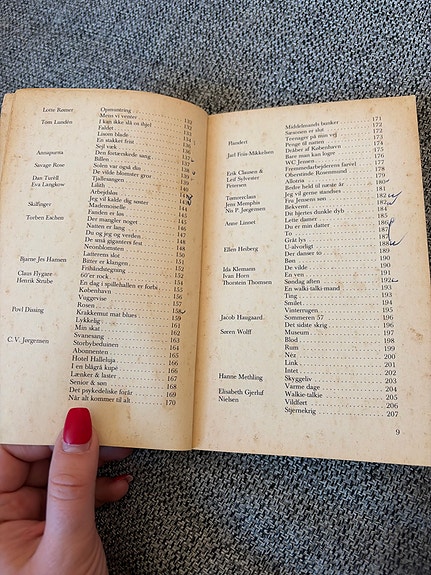 Lotte Rømer Opmuntring 132
Mens vi venter 133
Tom Lundén I kan ikke slå os ihjel
Faldet
Linien blade
Et stakket frist
Sejl væk 136
Annapurna Den fortærskede sang
Billen
Savage Rose Solen var også din 138
De vilde blomster gror
Dan Turèll Tjallerangen 139
Eva Langkow Lilith 140
Arbejdsløs
Jeg vil kalde dig søster
Skifinger Mademoiselle 144
Fanden er løs 145
Torben Eschen Der mangler noget 145
Natten er lang 146
Du og jeg og verden 147
De små giganters fest 148
Neonblomsten 148
Latterens slot 150
Bjarne Jes Hansen Binter er klangen 151
Frihåndstegning 152
Claus Flygare 60'er rock 153
Henrik Strube En dag i spillehallen er forbi 154
København 155
Vuggevise 156
Rosen 157
Povl Dissing Krakkemut mat blues 158
Lykkelig 159
Min skat 161
Svanesang 162
C.V. Jørgensen Storbybeduinen 163
Abonnenten 164
Hotel Halleluja 165
I en blågrå kupé 166
Lænker & laster 167
Senior & søn 168
Det psykedeliske forår 169
Når alt kommer til alt 170
Middelmådens bunker 171
Sæsonen er slut 172
Teenager på min vej 173
Flanderi Penge til natten 174
Dråber af København 175
Juel Friis-Mikkelsen Bare man kan loger 175
WC Jensen 177
Erik Clausen & Fremmedarbejderens farvel 177
Leif Sylvester Oberstinde Rosenmund 178
Petersen Allotria 179
Bedre held til næste år 180
Tømrerclaus Jeg vil gerne standses 181
Jens Memphis Fru Jensens søn 182
Nis P. Jørgensen Bekvemt 182
Dit hjertes dunkle dyb 184
Anne Linnet Lette damer 185
Du er min datter 186
To 187
Gråt lys 187
U-alvorligt 188
Der danser to 189
Ellen Heiberg Bøn 190
De vilde 190
Ida Klemann En ven 191
Ivan Horn Søndag aften 192
Thorstein Thomsen En walki-talki-mand 193
Ting 193
Smilet 194
Vinterrugen 195
Jacob Haugaard Sommeren 57 196
Det sidste skrig 196
Søren Wolff Museum 197
Blod 198
Rum 199
Néz 200
Link 201
Intet 202
Skyggeliv 203
Hanne Methling Varme dage 204
Walkie-talkie 205
Elisabeth Gjerluf Vildført 206
Nielsen Stjernekrig 207
9